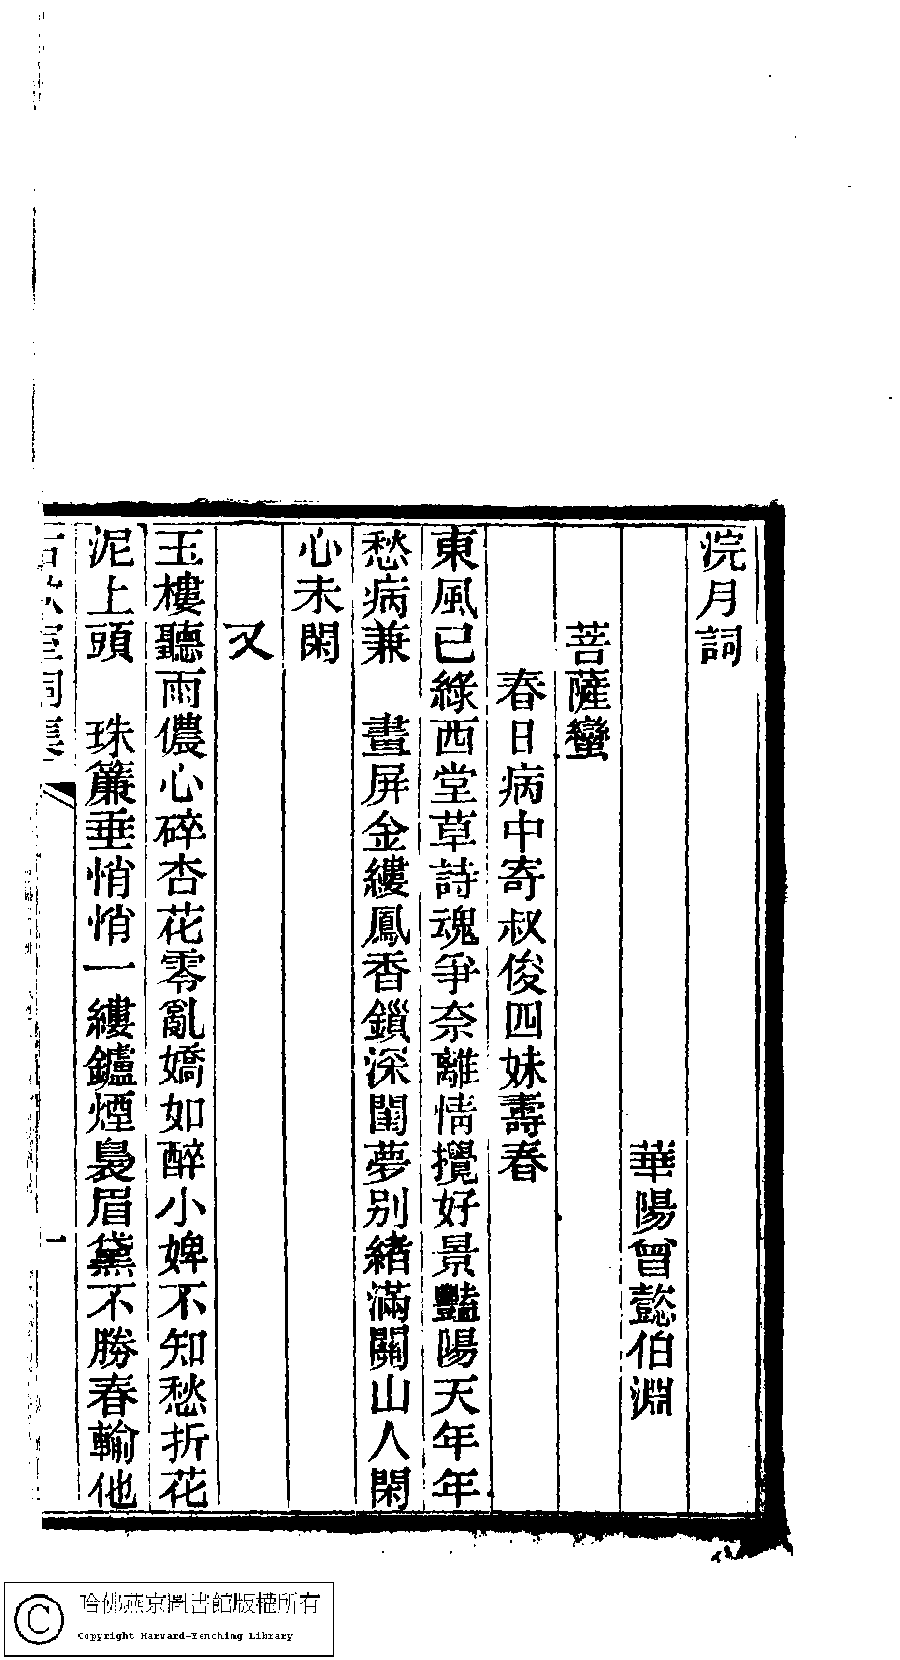 浣月詞
華陽曾懿伯淵
菩薩蠻
春日病中寄叔俊四妹壽春
東風已綠西堂草詩魂爭奈離情攪好景豔陽天年年
愁病兼　畫屏金縷鳳香鎖深閨夢別緒滿關山人閑
心未閑
又
玉樓聽雨儂心碎杏花零亂嬌如醉小婢不知愁折花
泥上頭　珠簾垂悄悄一縷鑪煙裊眉黛不勝春輸他
一
哈佛燕京圖書館版權所有
Copyright Harvard-Yenching Library